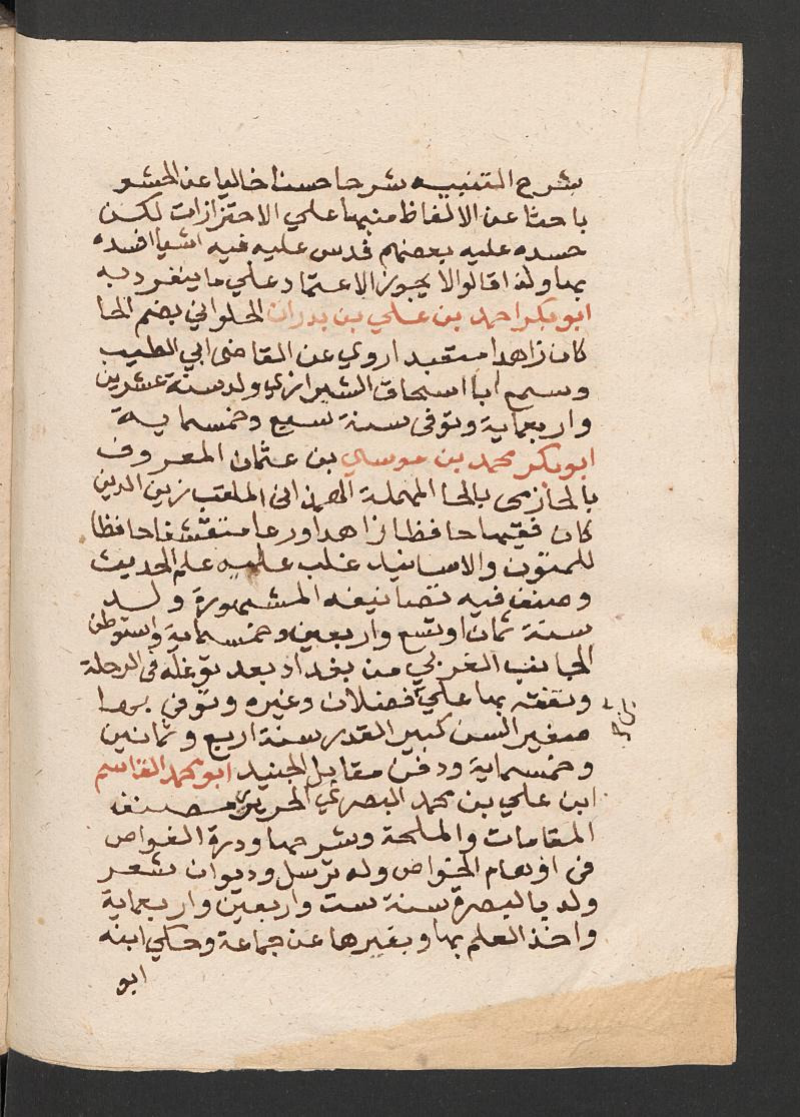 بشرح التنبيه شرحا حسنا خاليا عن الحشو
باحثا عن الالفاظ منبها علي الاحترازات لكن
حسده عليه بعضهم فدس عليه فيه اشيا افسده
بها ولذا قالوا لا يجوز الاعتماد علي ما ينفرد به
ابو بكر احمد بن علي بن بدران الحلواني بضم الحا
كان زاهدا متعبدا روي عن القاضي ابي الطيب
وسمع ابا اسحاق الشيرازي ولد سنة عشرين
واربعماية وتوفي سنة سبع وخمسماية
ابو بكر محمد بن موسي بن عثمان المعروف
بالحازمي بالحا المهملة الهمداني الملقب زين الدين
كان فقيها حافظا زاهدا ورعا متقشفا حافظا
للمتون والاسانيد غلب عليه علم الحديث
وصنف فيه تصانيفه المشهورة ولد
سنة ثمان او تسع واربعين وخمسماية واستوطن
الجانب الغربي من بغداد بعد توغله في الرحلة
وتفقه بها علي فضلان وغيره وتوفي بها
صغير السن كبير القدر سنة اربع وثمانين
وخمسماية ودفن مقابل الجنيد ابو محمد القاسم
ابن علي بن محمد البصري الحريري مصنف
المقامات والملحة وشرحها ودرة الغواص
في اوهام الخواص وله ترسل وديوان شعر
ولد بالبصرة سنة ست واربعين واربعماية
واخذ العلم بها وبغيرها عن جماعة وحكي ابنه
ابو